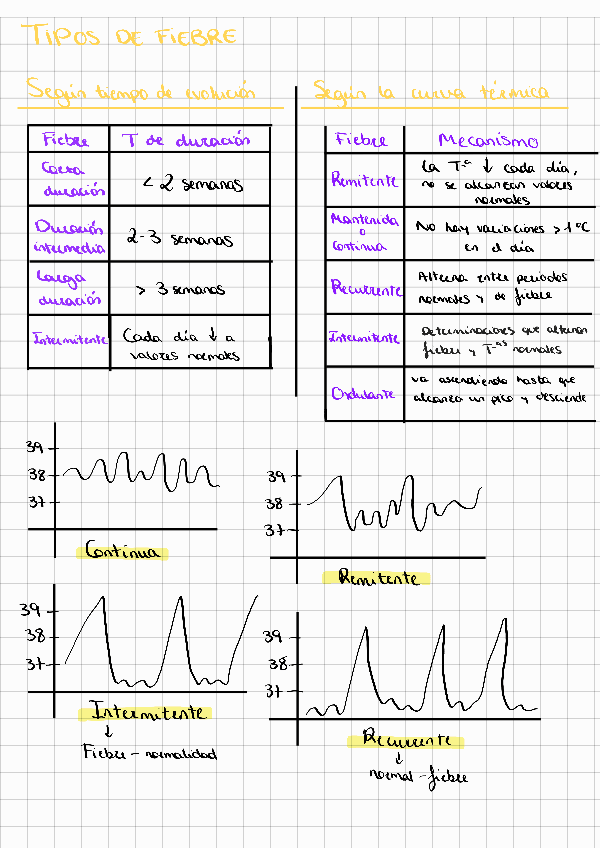 TIPOS DE FIEBRE
Según tiempo de evolución
Fiebre T de duración
Corta duración < 2 semanas
Duración intermedia 2-3 semanas
Larga duración > 3 semanas
Intermitente Cada día ↓ a
valores normales
Según la curva térmica
Fiebre Mecanismo
Remitente La T.ª ↓ cada día,
no se alcanzan valores
normales
Mantenida o Continua No hay variaciones > 1ºC
en el día
Recurrente Alterna entre periodos
normales y de fiebre
Intermitente Determinaciones que alternan
fiebre y T.ªs normales
Ondulante va ascendiendo hasta que
alcanza un pico y desciende
39
38
37
Continua
39
38
37
Remitente
39
38
37
Intermitente
↓
Fiebre - normalidad
39
38
37
Recurrente
↓
normal - fiebre